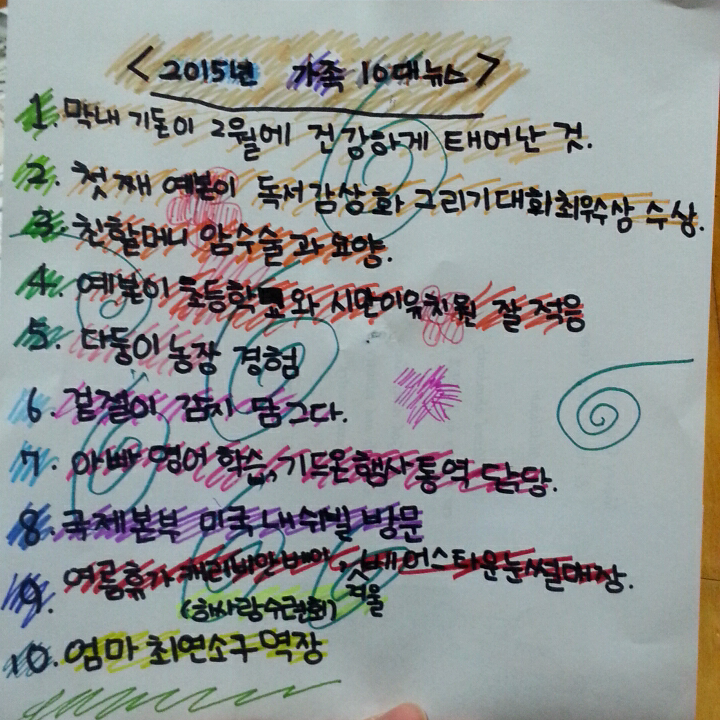 <2015년 가족 10대뉴스>
1. 막내 기돈이 2월에 건강하게 태어난 것.
2. 첫째 예본이 독서감상화 그리기대회최우수상 수상.
3. 친할머니 암수술과 요양.
4. 예본이 초등학교와 시만이유치원 잘 적응
5. 다둥이농장 경험
6. 겉절이 김치 담그다.
7. 아빠 영어 학습, 기드온행사통역 담당.
8. 국제본부 미국내쉬빌 방문
9. 여름휴가 캐리비안베이, 베어스타운눈썰매장.
(하사랑수련회) 겨울
10. 엄마 최연소구역장